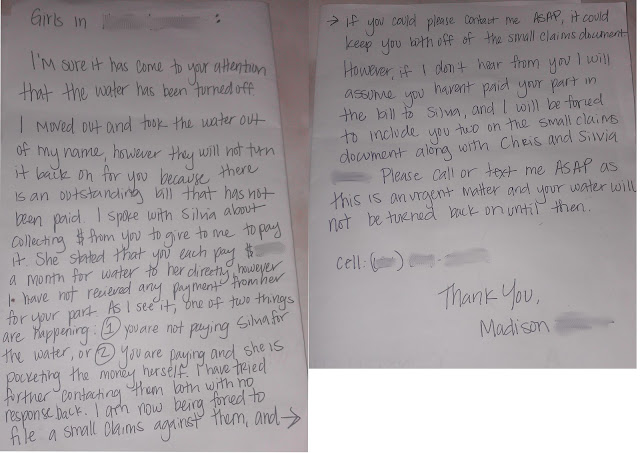 Girls in
I'm sure it has come to your attention
that the water has been turned off
I moved out and took the water out
of my name, however they will not turn
it back on for you because there
is an outstanding bill that has not
been paid. I spoke with Silvia about
collecting $ from you to give to me to pay
it. She stated that you each pay $
a month for water to her directly, however
I have not recieved any payment from her
for your part. As I see it, one of two things
are happening: ① you are not paying Silvia for
the water, or ② you are paying and she is
pocketing the money herself. I have tried
further contacting them both with no
response back. I am now being forced to
file a small claims against them, and →
→ if you could please contact me ASAP, it could
keep you both off of the small claims document
However, if I don't hear from you I will
assume you havent paid your part in
the bill to Silvia, and I will be forced
to include you two on the small claims
document along with Chris and Silvia
Please call or text me ASAP as
this is an urgent matter and your water will
not be turned back on until then.
cell: ( )
Thank You,
Madison